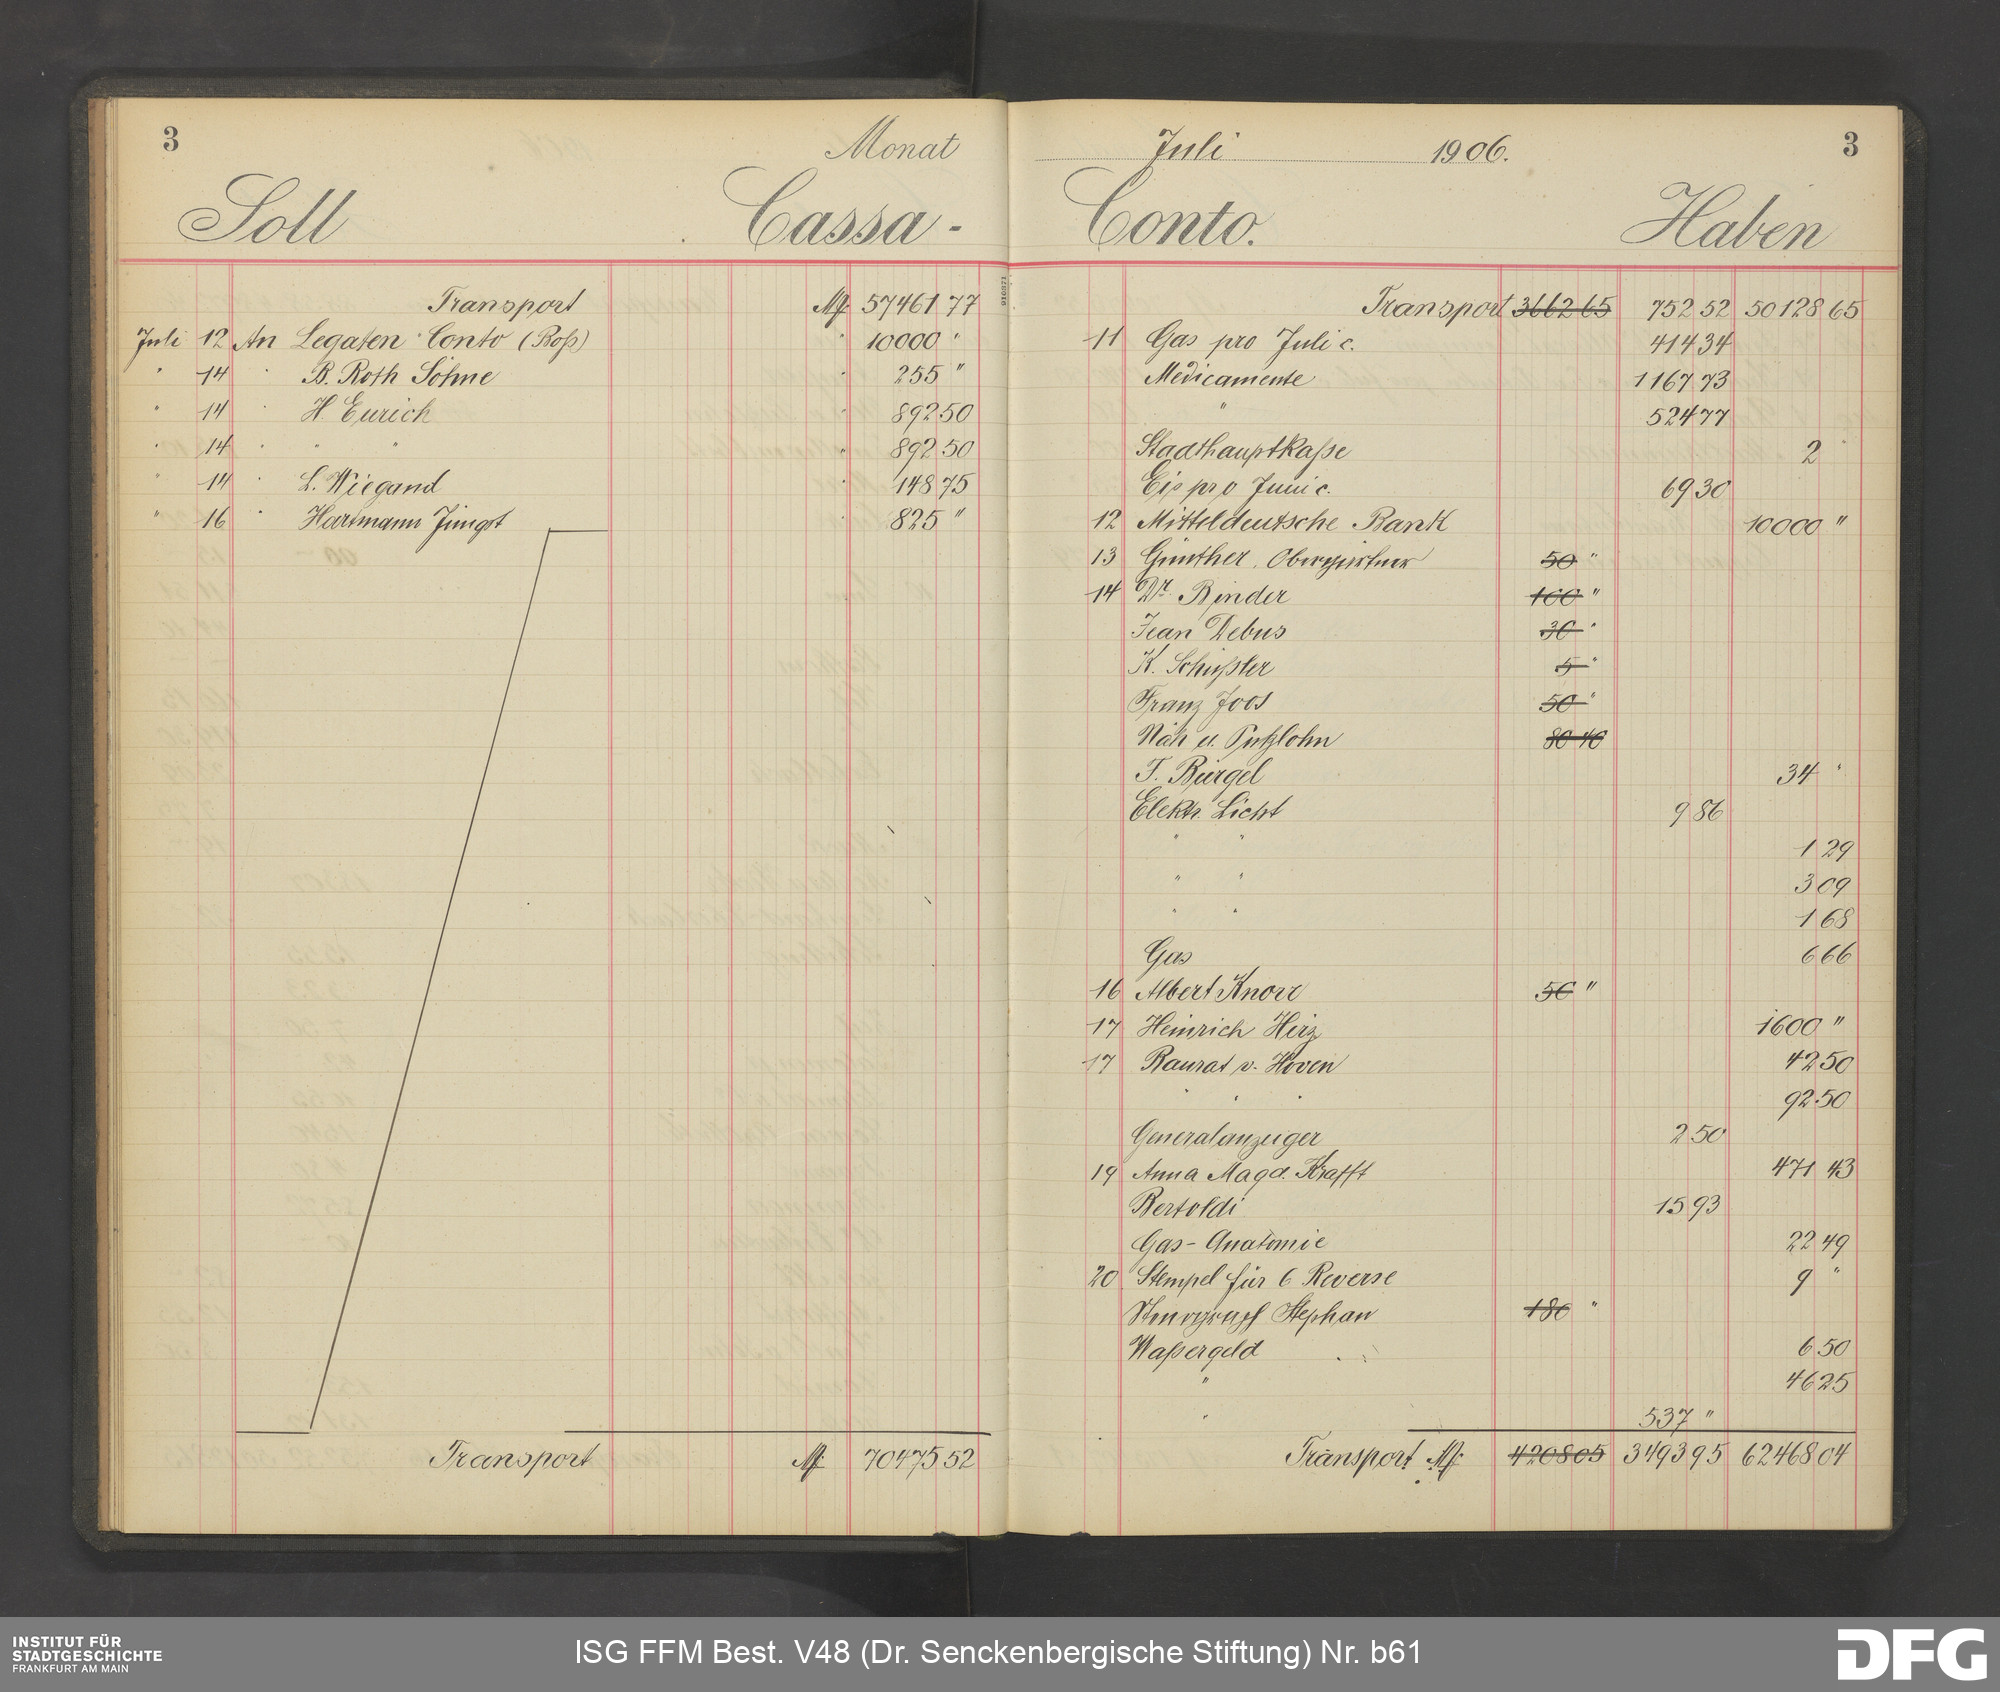 3 Monat
Soll Cassa-
Transport M 57461 77
Juli 12 An Legaten Conto (Boß) " 10000 "
" 14 " B. Roth Söhne " 255 "
" 14 " H. Eurich " 892 50
" 14 " " " " 892 50
" 14 " L. Wiegand " 148 75
" 16 " Hartmann Jüngst " 825 "
Transport M 70475 52
Juli 1906. 3
Conto. Haben
210371
Transport 3662 65 752 52 50128 65
11 Gas pro Juli c. 414 34
Medicamente 1167 73
" 524 77
Stadthauptkaße 2 "
Eis pro Juni c. 69 30
12 Mitteldeutsche Bank 10000 "
13 Günther, Obergärtner 50 "
14 Dr. Binder 100 "
Jean Debus 30 "
K. Schüßler 5 "
Franz Joos 50 "
Näh u. Putzlohn 80 40
T. Bürgel 34 "
Elektr. Licht 9 86
" " 1 29
" " 3 09
" " 1 68
Gas 6 66
16 Albert Knorr 50 "
17 Heinrich Hirz 1600 "
17 Baurat v. Hoven 42 50
" " " 92.50
Generalanzeiger 2 50
19 Anna Magd. Krafft 471 43
Bertoldi 15 93
Gas-Anatomie 22 49
20 Stempel für 6 Reverse 9 "
Stenograph Stephan 180 "
Waßergeld 6 50
" 46 25
" 537 "
Transport M 4208 05 3493 95 62468 04
INSTITUT FÜR
STADTGESCHICHTE
FRANKFURT AM MAIN
ISG FFM Best. V48 (Dr. Senckenbergische Stiftung) Nr. b61
DFG